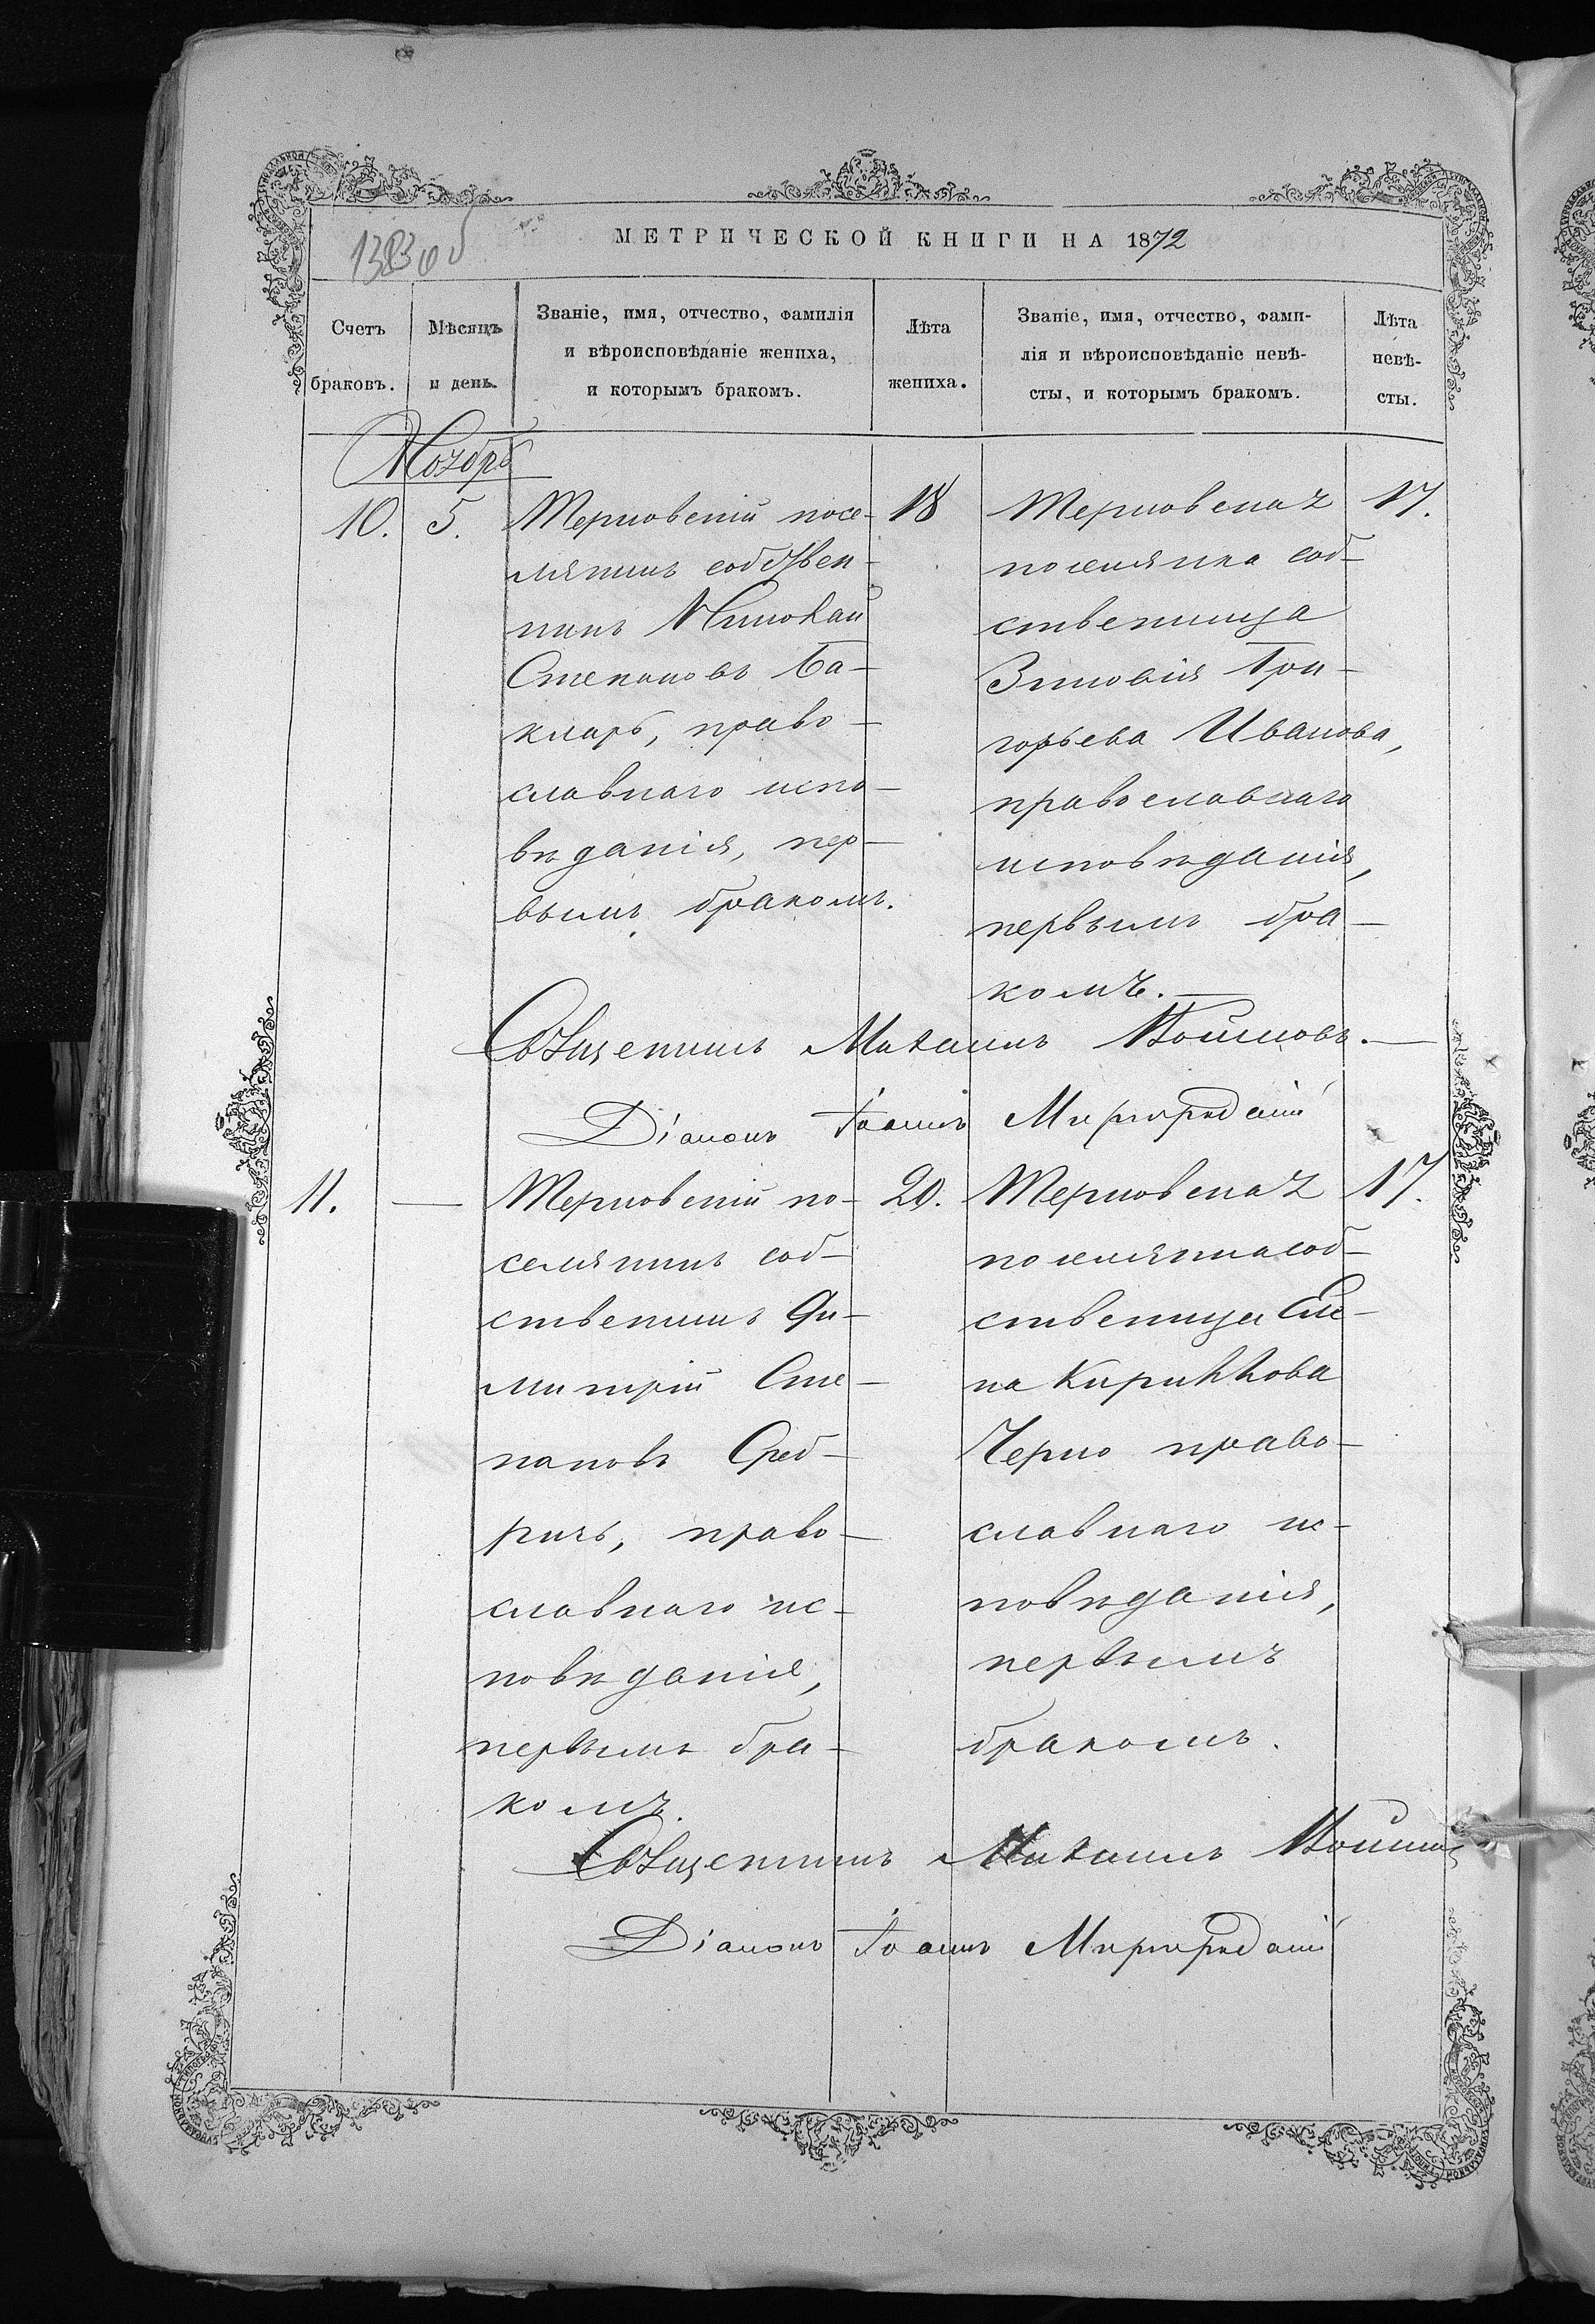 МЕТРИЧЕСКОЙ КНИГИ НА 1872
Счетъ браковъ.
Мѣсяцъ и день.
Званіе, имя, отчество, фамилія
и вѣроисповѣданіе жениха,
и которымъ бракомъ.
Лѣта жениха.
Званіе, имя, отчество, фами-
лія и вѣроисповѣданіе невѣ-
сты, и которымъ бракомъ.
Лѣта невѣ-
сты.
Ноябрь
10. 5.
Терновскій посе-
лянинъ собствен-
никъ Николай
Степановъ Ба-
кларь, право-
славнаго испо-
вѣданія, пер-
вымъ бракомъ.
18
Терновская
поселянка соб-
ственница
Зиновія Гри-
горьева Иванова,
православнаго
исповѣданія,
первымъ бра-
комъ.
17.
Священникъ Михаилъ
Діаконъ Іоаннъ
11. —
Терновскій по-
селянинъ соб-
ственникъ Ди-
митрій Сте-
пановъ Среб-
ричь, право-
славнаго ис-
повѣданія,
первымъ бра-
комъ.
20.
Терновская
поселянка соб-
ственница Еле-
на Кириллова
Черно право-
славнаго ис-
повѣданія,
первымъ
бракомъ.
17.
Священникъ Михаилъ
Діаконъ Іоаннъ